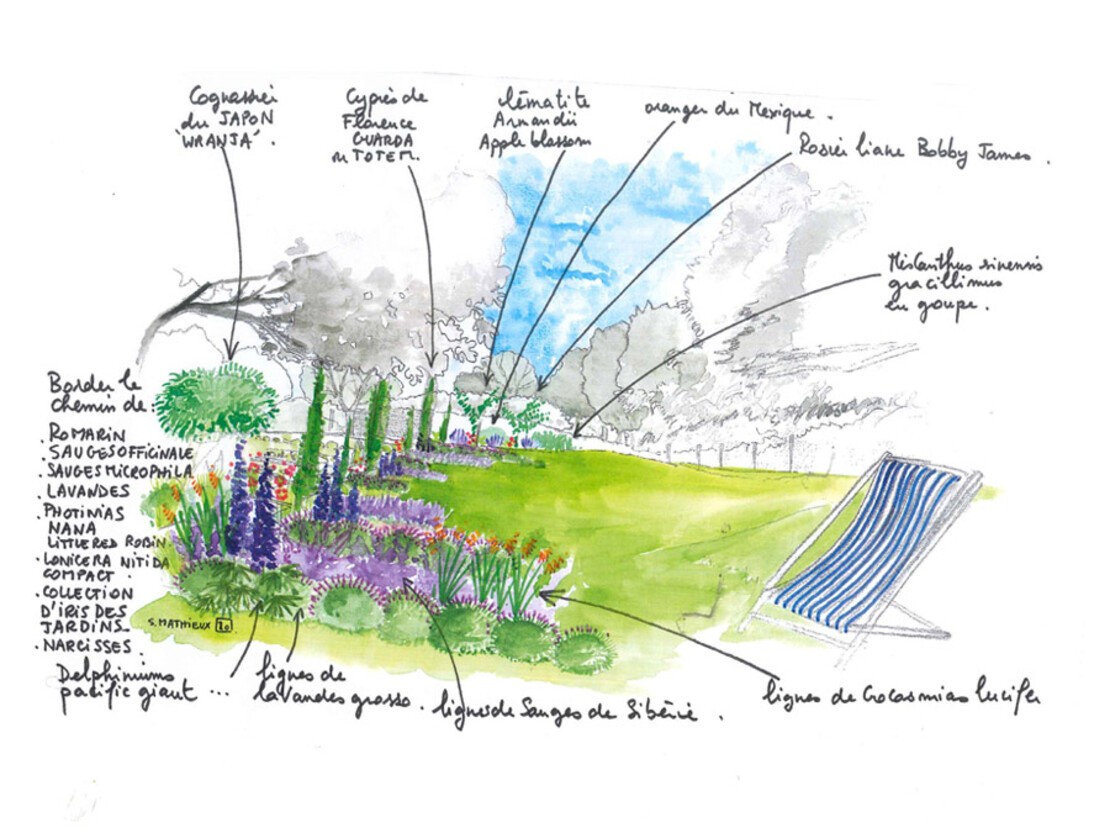 Cognassier
du JAPON
'WRANJA'.
Cyprès de
Florence
GUARDA
ou TOTEM.
Clématite
Armandii
Apple blossom
oranger du Mexique.
Rosier liane Bobby James.
Miscanthus sinensis
gracillimus
en goupe.
Border le
chemin de:
. ROMARIN
. SAUGES OFFICINALE
. SAUGES MICROPHILA
. LAVANDES
. PHOTINIAS
NANA
LITTLE RED ROBIN
. LONICERA NITIDA
COMPACT.
. COLLECTION
D'IRIS DES
JARDINS
. NARCISSES.
S. MATHIEUX 20
Delphiniums
pacific giant...
lignes de
lavandes grosso.
lignes de Sauges de Sibérie.
lignes de Crocosmias lucifer